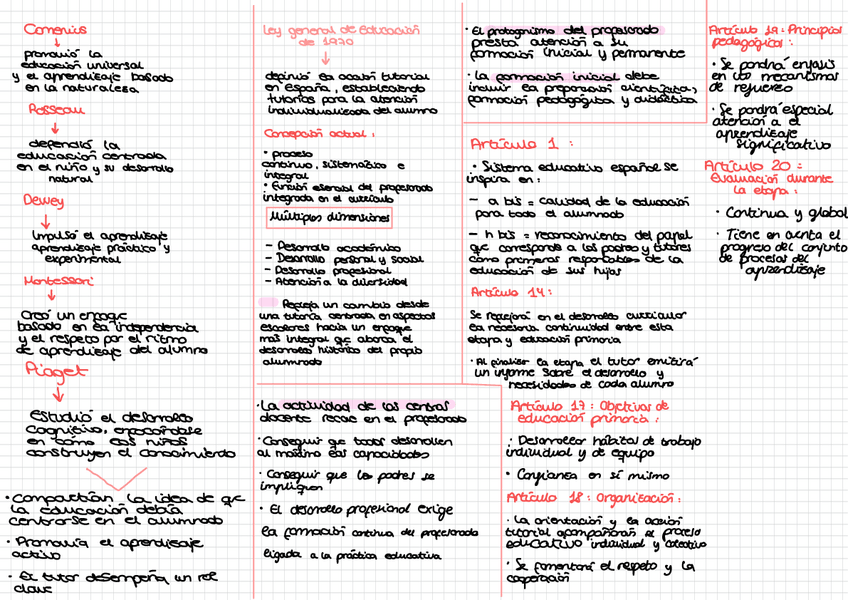 Comenius
promovió la
educación universal
y el aprendizaje basado
en la naturaleza
Rosseau
defendió la
educación centrada
en el niño y su desarrollo
natural
Dewey
Impulsó el aprendizaje
aprendizaje práctico y
experimental
Montessori
Creó un enfoque
basado en la independencia
y el respeto por el ritmo
de aprendizaje del alumno
Piaget
Estudió el desarrollo
Cognitivo, enfocándose
en cómo los niños
construyen el conocimiento
• Compartían la idea de que
la educación debía
centrarse en el alumnado
• Promovía el aprendizaje
activo
• El tutor desempeña un rol
clave
Ley general de Educación
de 1970
definió la acción tutorial
en España, estableciendo
tutorías para la atención
individualizada del alumno
Concepción actual:
• proceso
continuo, sistemático e
integral
• Función esencial del profesorado
integrada en el currículo
Múltiples dimensiones
- Desarrollo académico
- Desarrollo personal y social
- Desarrollo profesional
- Atención a la diversidad
Refleja un cambio desde
una tutoría centrada en aspectos
escolares hacia un enfoque
más integral que aborda el
desarrollo histórico del propio
alumnado
• La actividad de los centros
docente recae en el profesorado
• Conseguir que todos desarrollen
al máximo las capacidades
• Conseguir que los padres se
impliquen
• El desarrollo profesional exige
la formación continua del profesorado
ligada a la práctica educativa
• El protagonismo del profesorado
presta atención a su
formación inicial y permanente
• La formación inicial debe
incluir la preparación científica,
formación pedagógica y didáctica
Artículo 1 :
• Sistema educativo español se
inspira en:
- a bis = calidad de la educación
para todo el alumnado
- h bis = reconocimiento del papel
que corresponde a los padres y tutores
como primeros responsables de la
educación de sus hijos
Artículo 14:
Se reflejará en el desarrollo curricular
la necesaria continuidad entre esta
etapa y educación primaria
• Al finalizar la etapa el tutor emitirá
un informe sobre el desarrollo y
necesidades de cada alumno
Artículo 17: Objetivos de
educación primaria:
• Desarrollar hábitos de trabajo
individual y de equipo
• Confianza en sí mismo
Artículo 18: Organización:
• La orientación y la acción
tutorial acompañarán el proceso
educativo individual y colectivo
• Se fomentará el respeto y la
cooperación
Artículo 19: Principios
pedagógicos:
• Se pondrá énfasis
en los mecanismos
de refuerzo
• Se pondrá especial
atención a el
aprendizaje
significativo
Artículo 20:
Evaluación durante
la etapa:
• Continua y global
• Tiene en cuenta el
progreso del conjunto
de procesos del
aprendizaje